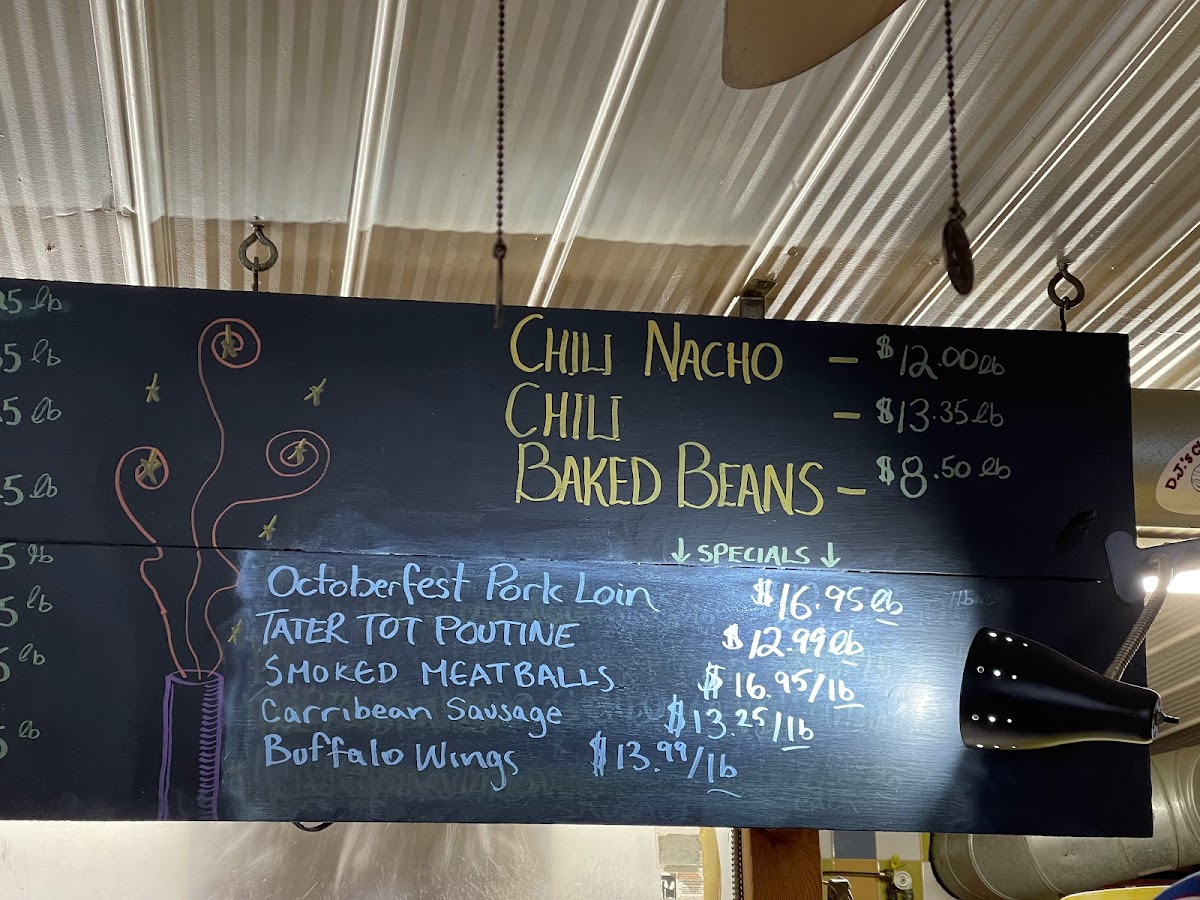 5 lb
5 lb
5 lb
5 lb
5 lb
5 lb
lb
lb
CHILI NACHO - $12.00 lb
CHILI - $13.35 lb
BAKED BEANS - $8.50 lb
↓ SPECIALS ↓
Octoberfest Pork Loin $16.95 lb
TATER TOT POUTINE $12.99 lb
SMOKED MEATBALLS $16.95/lb
Carribean Sausage $13.25/lb
Buffalo Wings $13.99/lb
D.J.'s